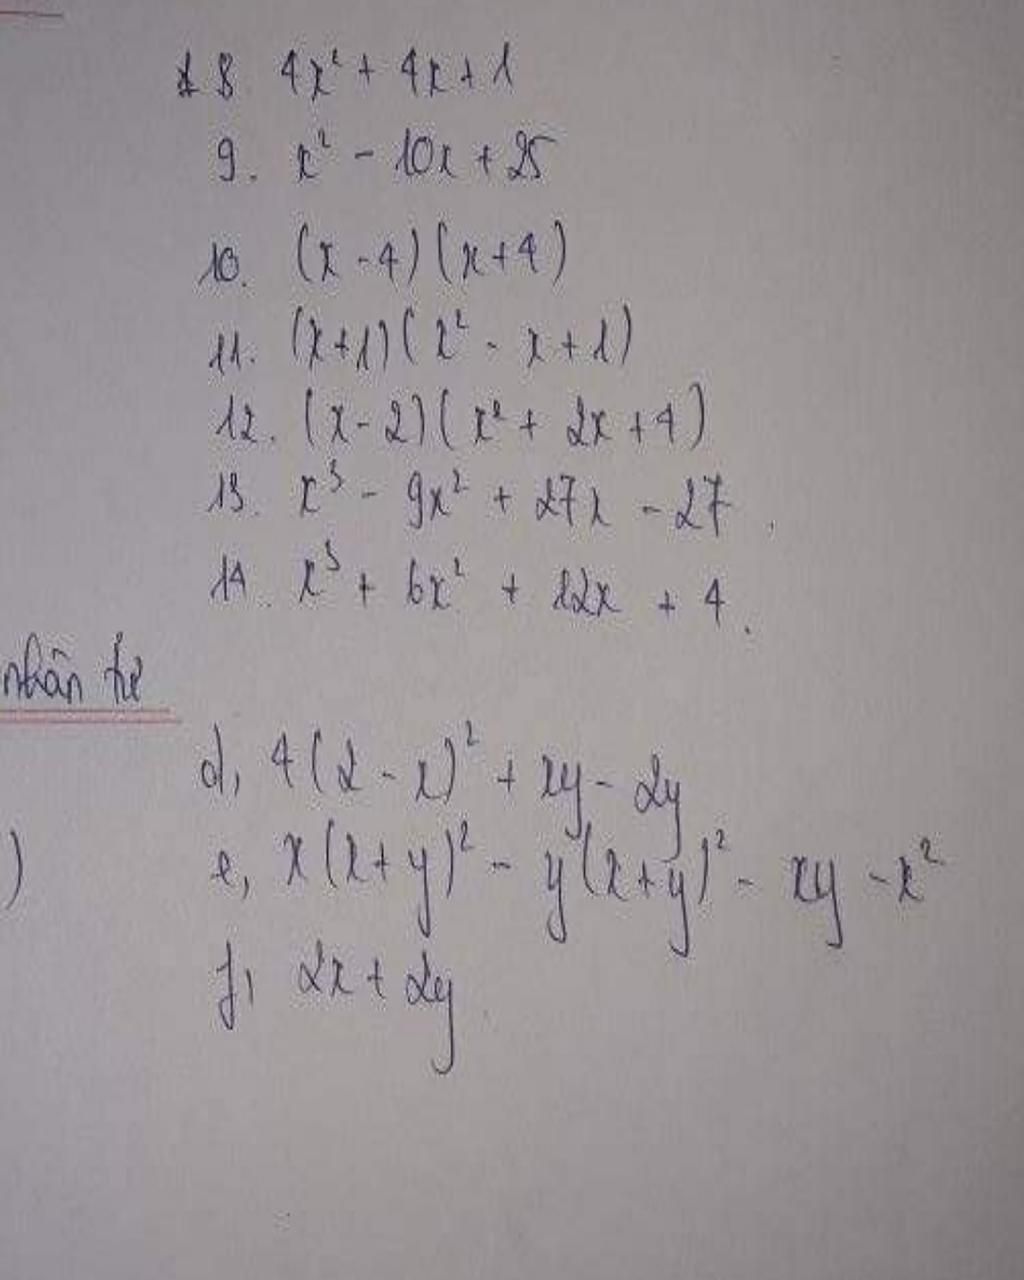 8. 4x² + 4x + 1
9. x² - 10x + 25
10. (x - 4)(x + 4)
11. (x + 1)(x² - x + 1)
12. (x - 2)(x² + 2x + 4)
13. x³ - 9x² + 27x - 27.
14. x³ + 6x² + 12x + 4.
nhân tử
d, 4(2 - x)² + xy - 2y
) e, x(x + y)² - y(x + y)² - xy - x²
f, 2x + 2y